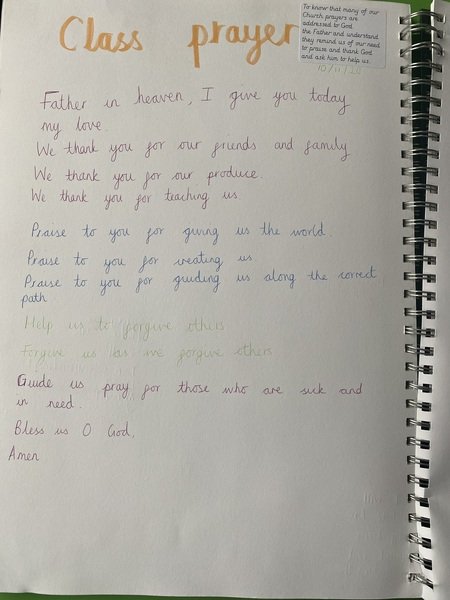 Class prayer
To know that many of our
Church prayers are
addressed to God
the Father and understand
they remind us of our need
to praise and thank God
and ask him to help us.
10/11/20
Father in heaven, I give you today
my love.
We thank you for our friends and family
We thank you for our produce.
We thank you for teaching us.
Praise to you for giving us the world.
Praise to you for creating us
Praise to you for guiding us along the correct
path
Help us to forgive others
Forgive us as we forgive others
Guide us pray for those who are sick and
in need.
Bless us O God,
Amen